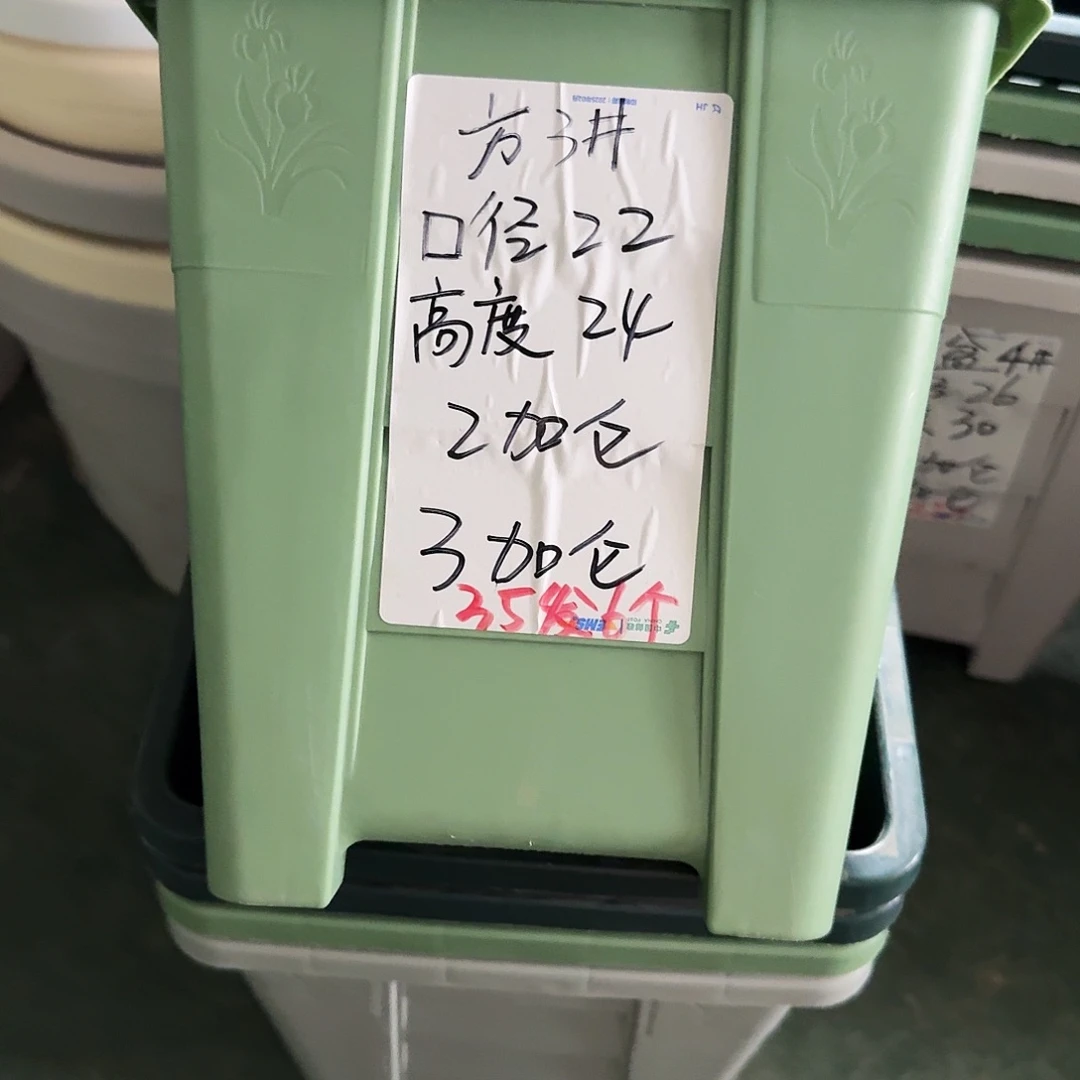 方3井
口径22
高度24
2加仑
3加仑
35发6个
EMS
盆4井
26
30
加仑